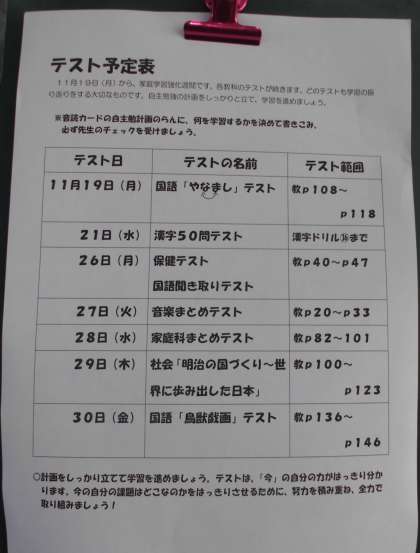 テスト予定表
１１月１９日（月）から、家庭学習強化週間です。各教科のテストが続きます。どのテストも学習の振
り返りをする大切なものです。自主勉強の計画をしっかりと立て、学習を進めましょう。
※音読カードの自主勉計画のらんに、何を学習するかを決めて書きこみ、
必ず先生のチェックを受けましょう。
テスト日 テストの名前 テスト範囲
１１月１９日（月） 国語「やなまし」テスト 教ｐ１０８～
ｐ１１８
２１日（水） 漢字５０問テスト 漢字ドリル⑯まで
２６日（月） 保健テスト 教ｐ４０～ｐ４７
国語聞き取りテスト
２７日（火） 音楽まとめテスト 教ｐ２０～ｐ３３
２８日（水） 家庭科まとめテスト 教ｐ８２～１０１
２９日（木） 社会「明治の国づくり～世 教ｐ１００～
界に歩み出した日本」 ｐ１２３
３０日（金） 国語「鳥獣戯画」テスト 教ｐ１３６～
ｐ１４６
○計画をしっかり立てて学習を進めましょう。テストは、「今」の自分の力がはっきり分か
ります。今の自分の課題はどこなのかをはっきりさせるために、努力を積み重ね、全力で
取り組みましょう！